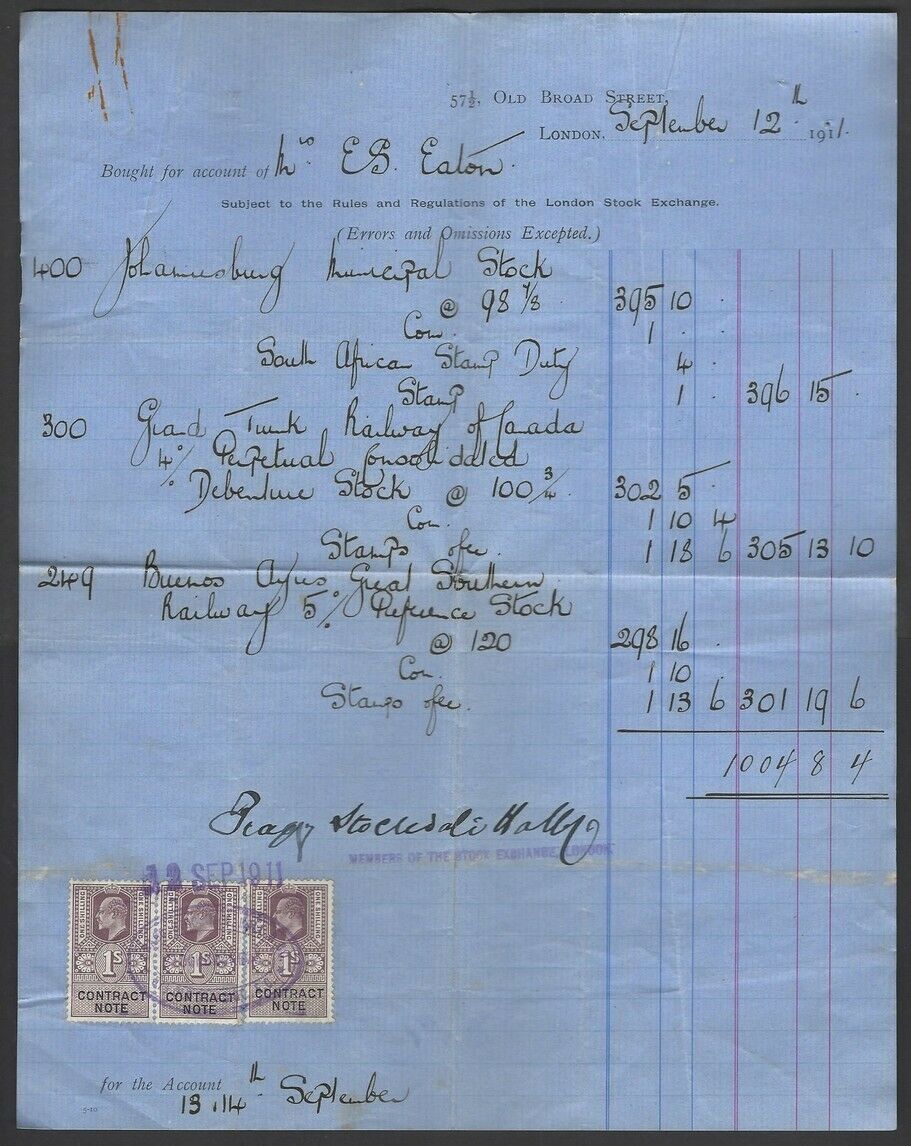 57½, OLD BROAD STREET,
LONDON, September 12th 1911.
Bought for account of Mrs E B. Eaton.
Subject to the Rules and Regulations of the London Stock Exchange.
(Errors and Omissions Excepted.)
400 Johannesburg Municipal Stock
@ 98 7/8 . 395 10 .
Com. 1 . .
South African Stamp Duty 4 .
Stamp 1 . 396 15 .
300 Grand Trunk Railway of Canada
4% Perpetual Consolidated
Debenture Stock @ 100 3/4. 302 5 .
Com. 1 10 4
Stamps & fee. 1 18 6 305 13 10
249 Buenos Ayres Great Southern
Railway 5% Preference Stock
@ 120 298 16 .
Com. 1 10 .
Stamps & fee. 1 13 6 301 19 6
1004 8 4
MEMBERS OF THE STOCK EXCHANGE, LONDON.
12 SEP 1911
ONE SHILLING ONE SHILLING ONE SHILLING ONE SHILLING ONE SHILLING ONE SHILLING
1S 1S 1S
CONTRACT NOTE CONTRACT NOTE CONTRACT NOTE
for the Account 13.14th September
5-10